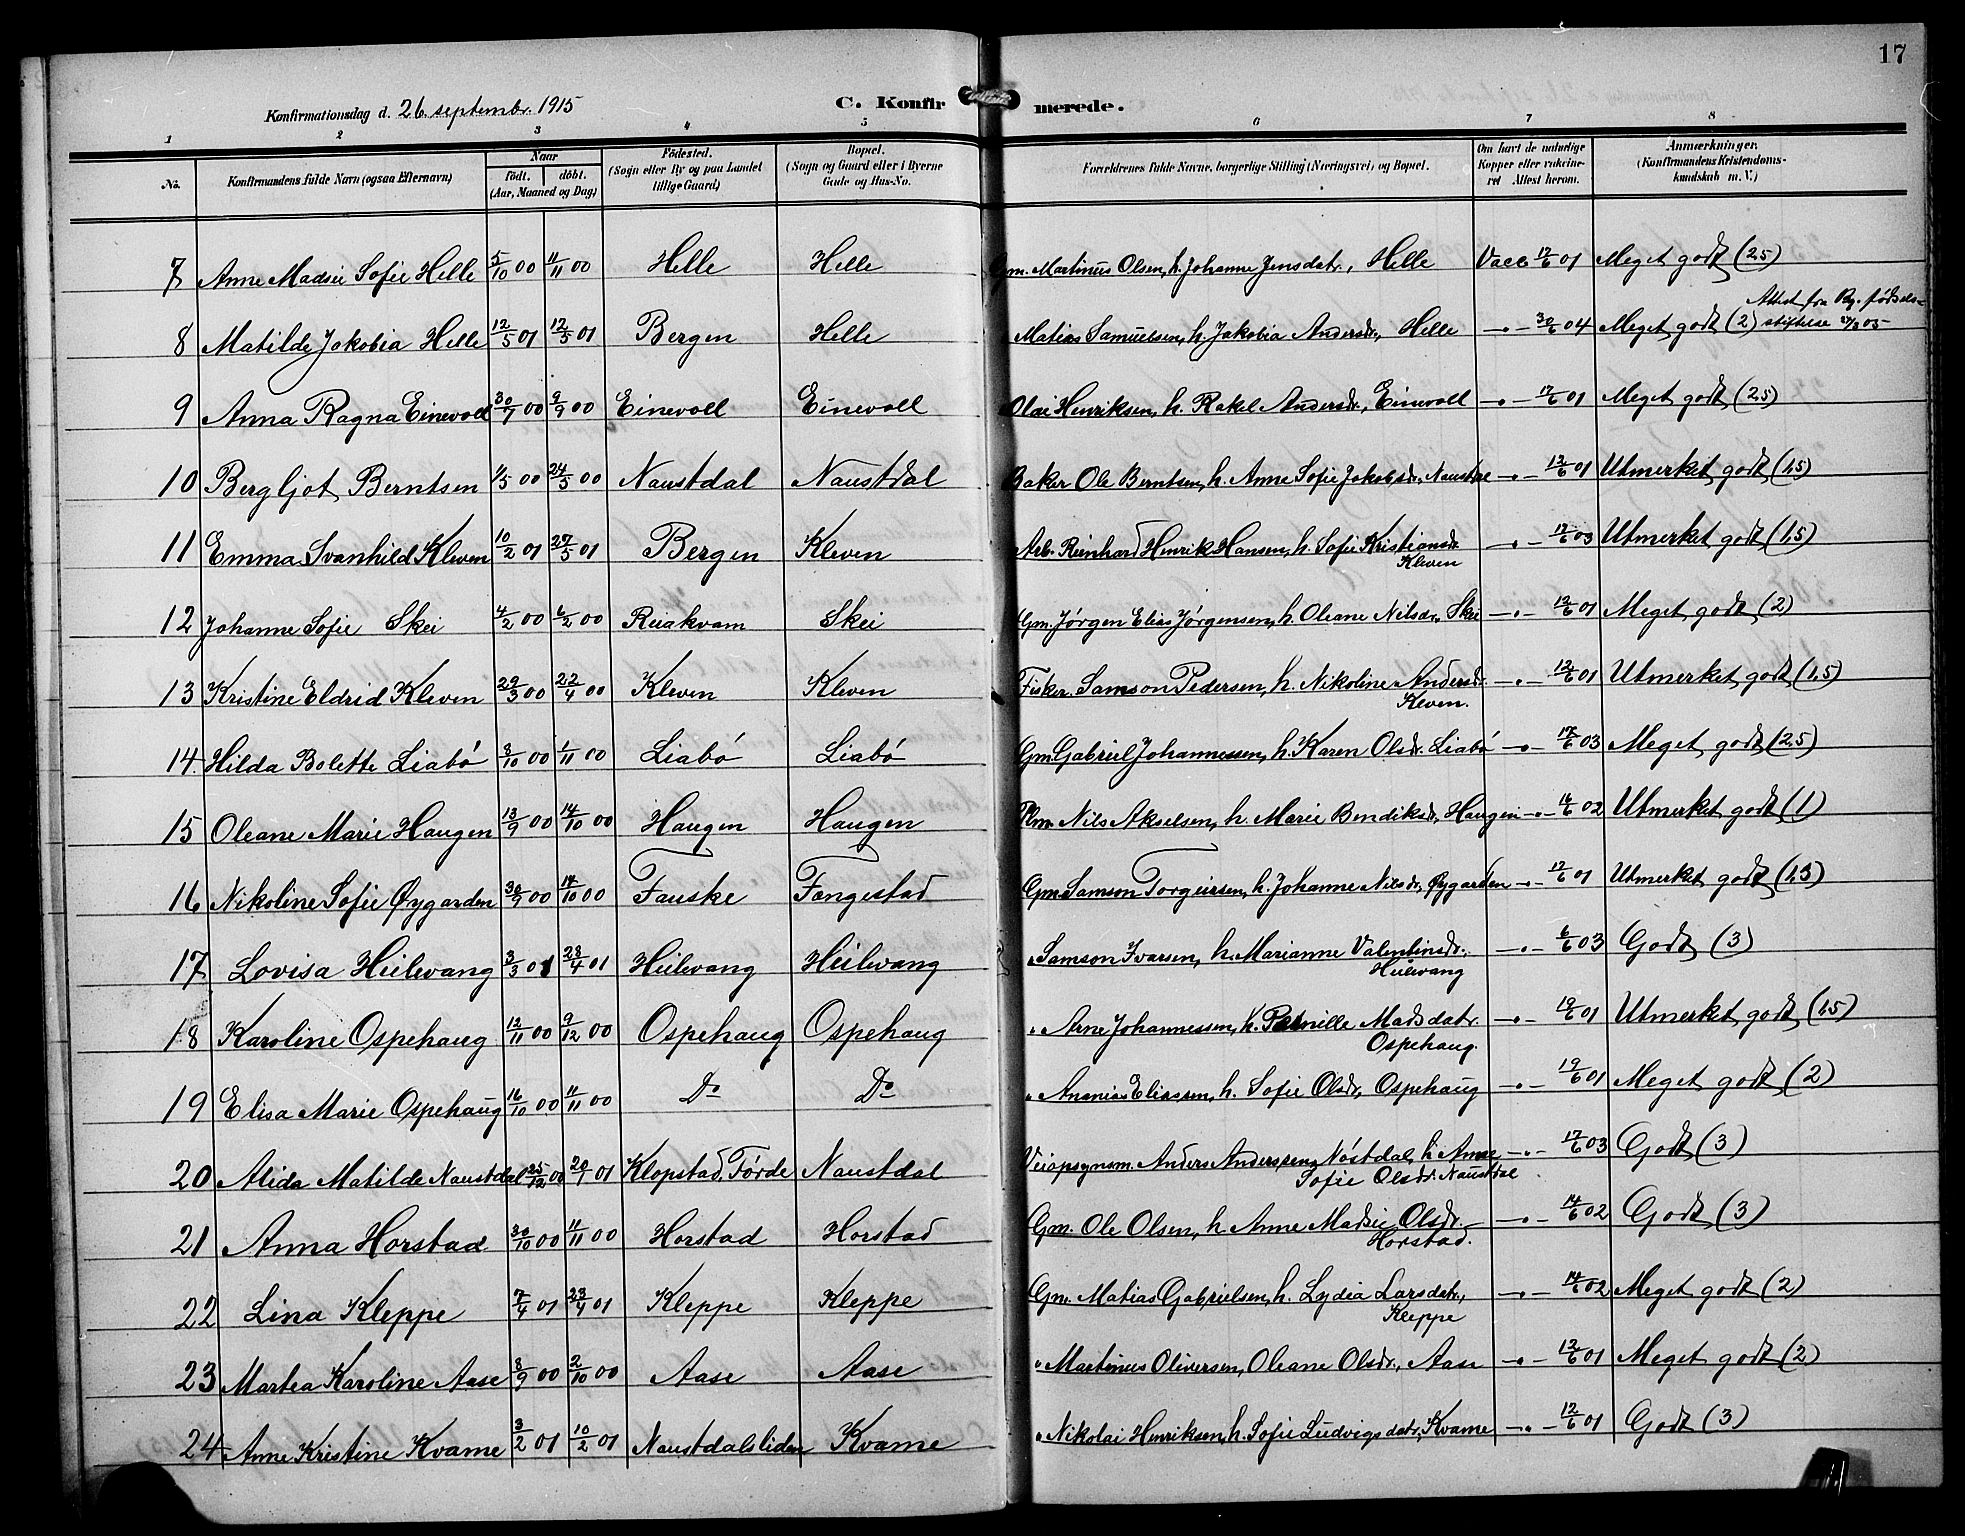 17
Konfirmationsdag d. 26. septembr. 1915 C. Konfirmerede.
1 2 3 4 5 6 7 8
No. Konfirmandens fulde Navn (ogsaa Efternavn) Naar født. døbt. (Aar, Maaned og Dag) Fødested. (Sogn eller By og paa Landet tillige Gaard) Bopæl. (Sogn og Gaard eller i Byerne Gade og Hus-No. Forældrenes fulde Navne, borgerlige Stilling (Næringsvei) og Bopæl. Om havt de naturlige Kopper eller vakcineret Attest herom. Anmærkninger. (Konfirmandens Kristendomskundskab m. V.)
7 Anne Madsie Sofie Helle 5/10 00 11/11 00 Helle Helle Gm. Martinus Olsen, h. Johanne Jensdatr., Helle Vacc 12/6 01 Meget godt (2,5)
8 Matilde Jakobia Helle 12/5 01 12/5 01 Bergen Helle Matias Samuelsen, h. Jakobia Andersdr., Helle -"- 30/6 04 Meget godt (2) Attest fra Bg. fødselsstiftelse
9 Anna Ragna Einevoll 30/7 00 9/9 00 Einevoll Einevoll Olai Henriksen, h. Rakel Andersdr., Einevoll -"- 12/6 01 Meget godt (2,5)
10 Bergljot Berntsen 1/5 00 24/5 00 Naustdal Naustdal Baker Ole Berntsen, h. Anne Sofie Jakobsdr., Naustdal -"- 12/6 01 Utmerket godt (1,5)
11 Emma Svanhild Kleven 10/2 01 27/5 01 Bergen Kleven Arb. Reinhard Henrik Hansen, h. Sofie Kristiansdr. Kleven -"- 12/6 03 Utmerket godt (1,5)
12 Johanne Sofie Skei 4/2 00 6/2 00 Reiakvam Skei Gm. Jørgen Elias Jørgensen, h. Oleane Nilsdr., Skei -"- 12/6 01 Meget godt (2)
13 Kristine Eldrid Kleven 29/3 00 22/4 00 Kleven Kleven Fisker Samson Pedersen, h. Nikoline Andersdr. Kleven. -"- 12/6 01 Utmerket godt (1,5)
14. Hilda Bolette Liabø 8/10 00 1/11 00 Liabø Liabø Gm. Gabriel Johannessen, h. Karen Olsdr. Liabø -"- 17/6 03 Meget godt (2,5)
15 Oleane Marie Haugen 13/9 00 14/10 00 Haugen Haugen Plm. Nils Akselsen, h. Marie Bendiksdr., Haugen -"- 14/6 02 Utmerket godt (1)
16 Nikoline Sofie Øygarden 30/9 00 14/10 00 Fauske Fangestad Gm. Samson Torgeirsen, h. Johanne Nilsdr., Øygarden -"- 12/6 01 Utmerket godt (1,3)
17 Lovisa Heilevang 3/3 01 28/4 01 Heilevang Heilevang " Samson Ivarsen, h. Marianne Valentinsdr. Heilevang -"- 6/6 03 Godt (3)
18 Karoline Ospehaug 12/11 00 9/12 00 Ospehaug Ospehaug " Arne Johannessen, h. Pernille Madsdatr. Ospehaug. -"- 19/6 01 Utmerket godt (1,5)
19 Elisa Marie Ospehaug 16/10 00 11/11 00 Do Do " Ananias Eliassen, h. Sofie Olsdr., Ospehaug -"- 19/6 01 Meget godt (2)
20 Alida Matilde Naustdal 25/12 00 20/1 01 Klopstad, Førde Naustdal Veiopsynsm. Anders Anderssen Nøstdal, h. Anne Sofie Olsdr. Naustdal -"- 17/6 03 Godt (3)
21 Anna Horstad 30/10 00 11/11 00 Horstad Horstad Gm. Ole Olsen, h. Anne Madsie Olsdr. Horstad. -"- 14/6 02 Godt (3)
22 Lina Kleppe 7/4 01 23/4 01 Kleppe Kleppe Gm. Matias Gabrielsen, h. Lydia Larsdatr., Kleppe -"- 14/6 02 Meget godt (2)
23 Martea Karoline Aase 8/9 00 2/10 00 Aase Aase " Martinus Oliversen, Oleane Olsdr., Aase -"- 12/6 01 Meget godt (2)
24 Anne Kristine Kvame 3/2 01 10/2 01 Naustdalslien Kvame " Nikolai Henriksen, h. Sofie Ludvigsdatr., Kvame -"- 12/6 01 Godt (3)